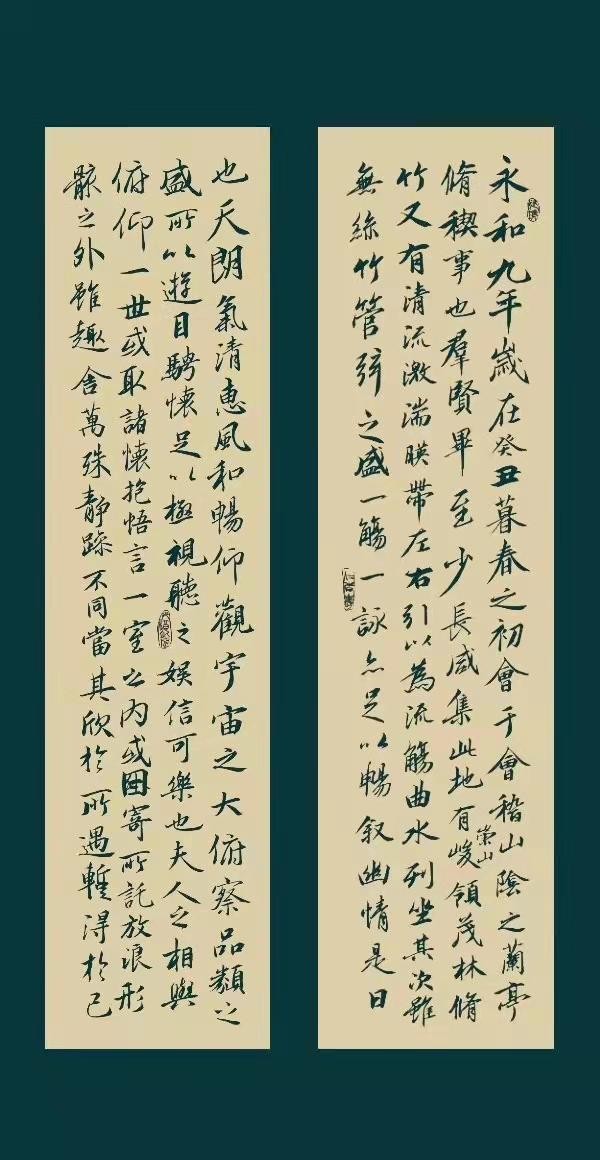 永和九年歲在癸丑暮春之初會于會稽山陰之蘭亭
脩稧事也羣賢畢至少長咸集此地有崇山峻領茂林脩
竹又有清流激湍暎帶左右引以為流觴曲水列坐其次雖
無絲竹管弦之盛一觴一詠亦足以暢叙幽情是日
也天朗氣清惠風和暢仰觀宇宙之大俯察品類之
盛所以遊目騁懷足以極視聽之娛信可樂也夫人之相與
俯仰一世或取諸懷抱悟言一室之內或因寄所託放浪形
骸之外雖趣舎萬殊靜躁不同當其欣於所遇暫得於己